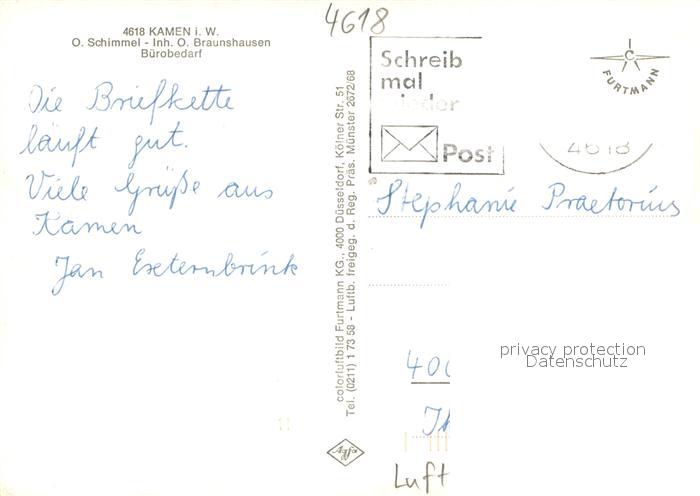 4618 KAMEN i. W.
O. Schimmel - Inh. O. Braunshausen
Bürobedarf
Die Briefkette
läuft gut.
Viele Grüße aus
Kamen
Jan Externbrink
colorluftbild Furtmann KG., 4000 Düsseldorf, Kölner Str. 51
Tel. (0211) 1 73 58 - Luftb. freigeg. d. Reg. Präs. Münster 2672/68
Agfa
4618
Schreib
mal
wieder
Post
C
FURTMANN
4618
Stephanie Praetorius
privacy protection
Datenschutz
400
Luft